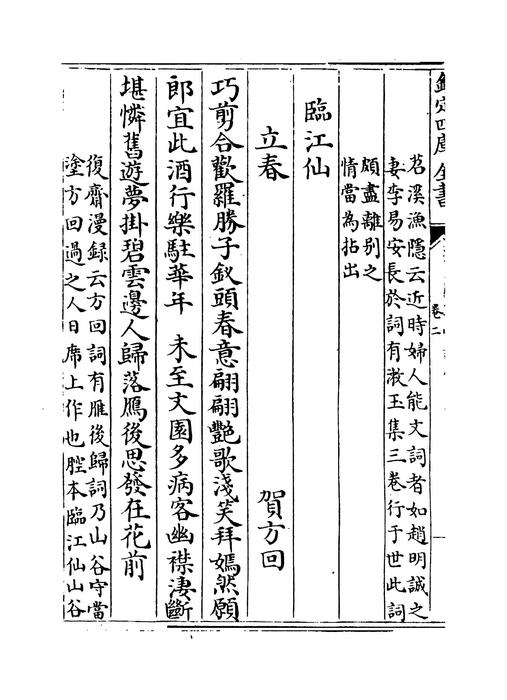 欽定四庫全書
卷二
苕溪漁隱云近時婦人能文詞者如趙明誠之
妻李易安長於詞有漱玉集三卷行于世此詞
頗盡離别之
情當為拈出
臨江仙
立春
賀方回
巧剪合歡羅勝子釵頭春意翩翩艶歌淺笑拜嫣然願
郎宜此酒行樂駐華年　未至文園多病客幽襟凄斷
堪憐舊遊夢掛碧雲邊人歸落鴈後思發在花前
復齋漫録云方回詞有雁後歸詞乃山谷守當
塗方回過之人日席上作也腔本臨江仙山谷